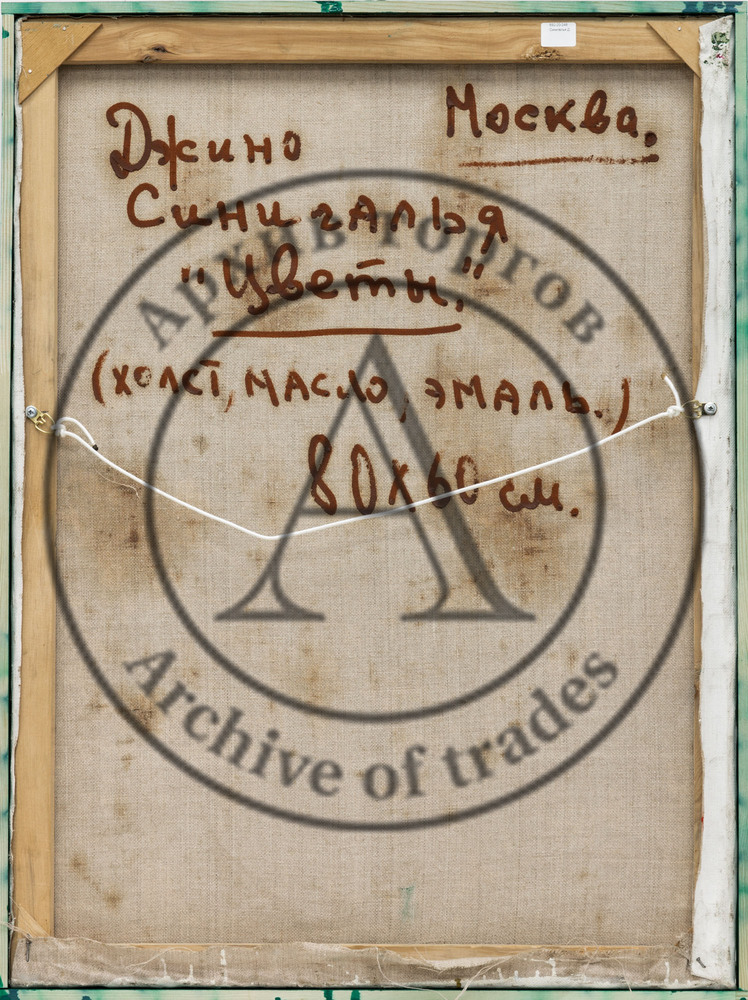 Москва.
Джино
Синигалья
"Цветы."
(холст, масло, эмаль.)
80х60 см.
Архив торгов
Archive of trades